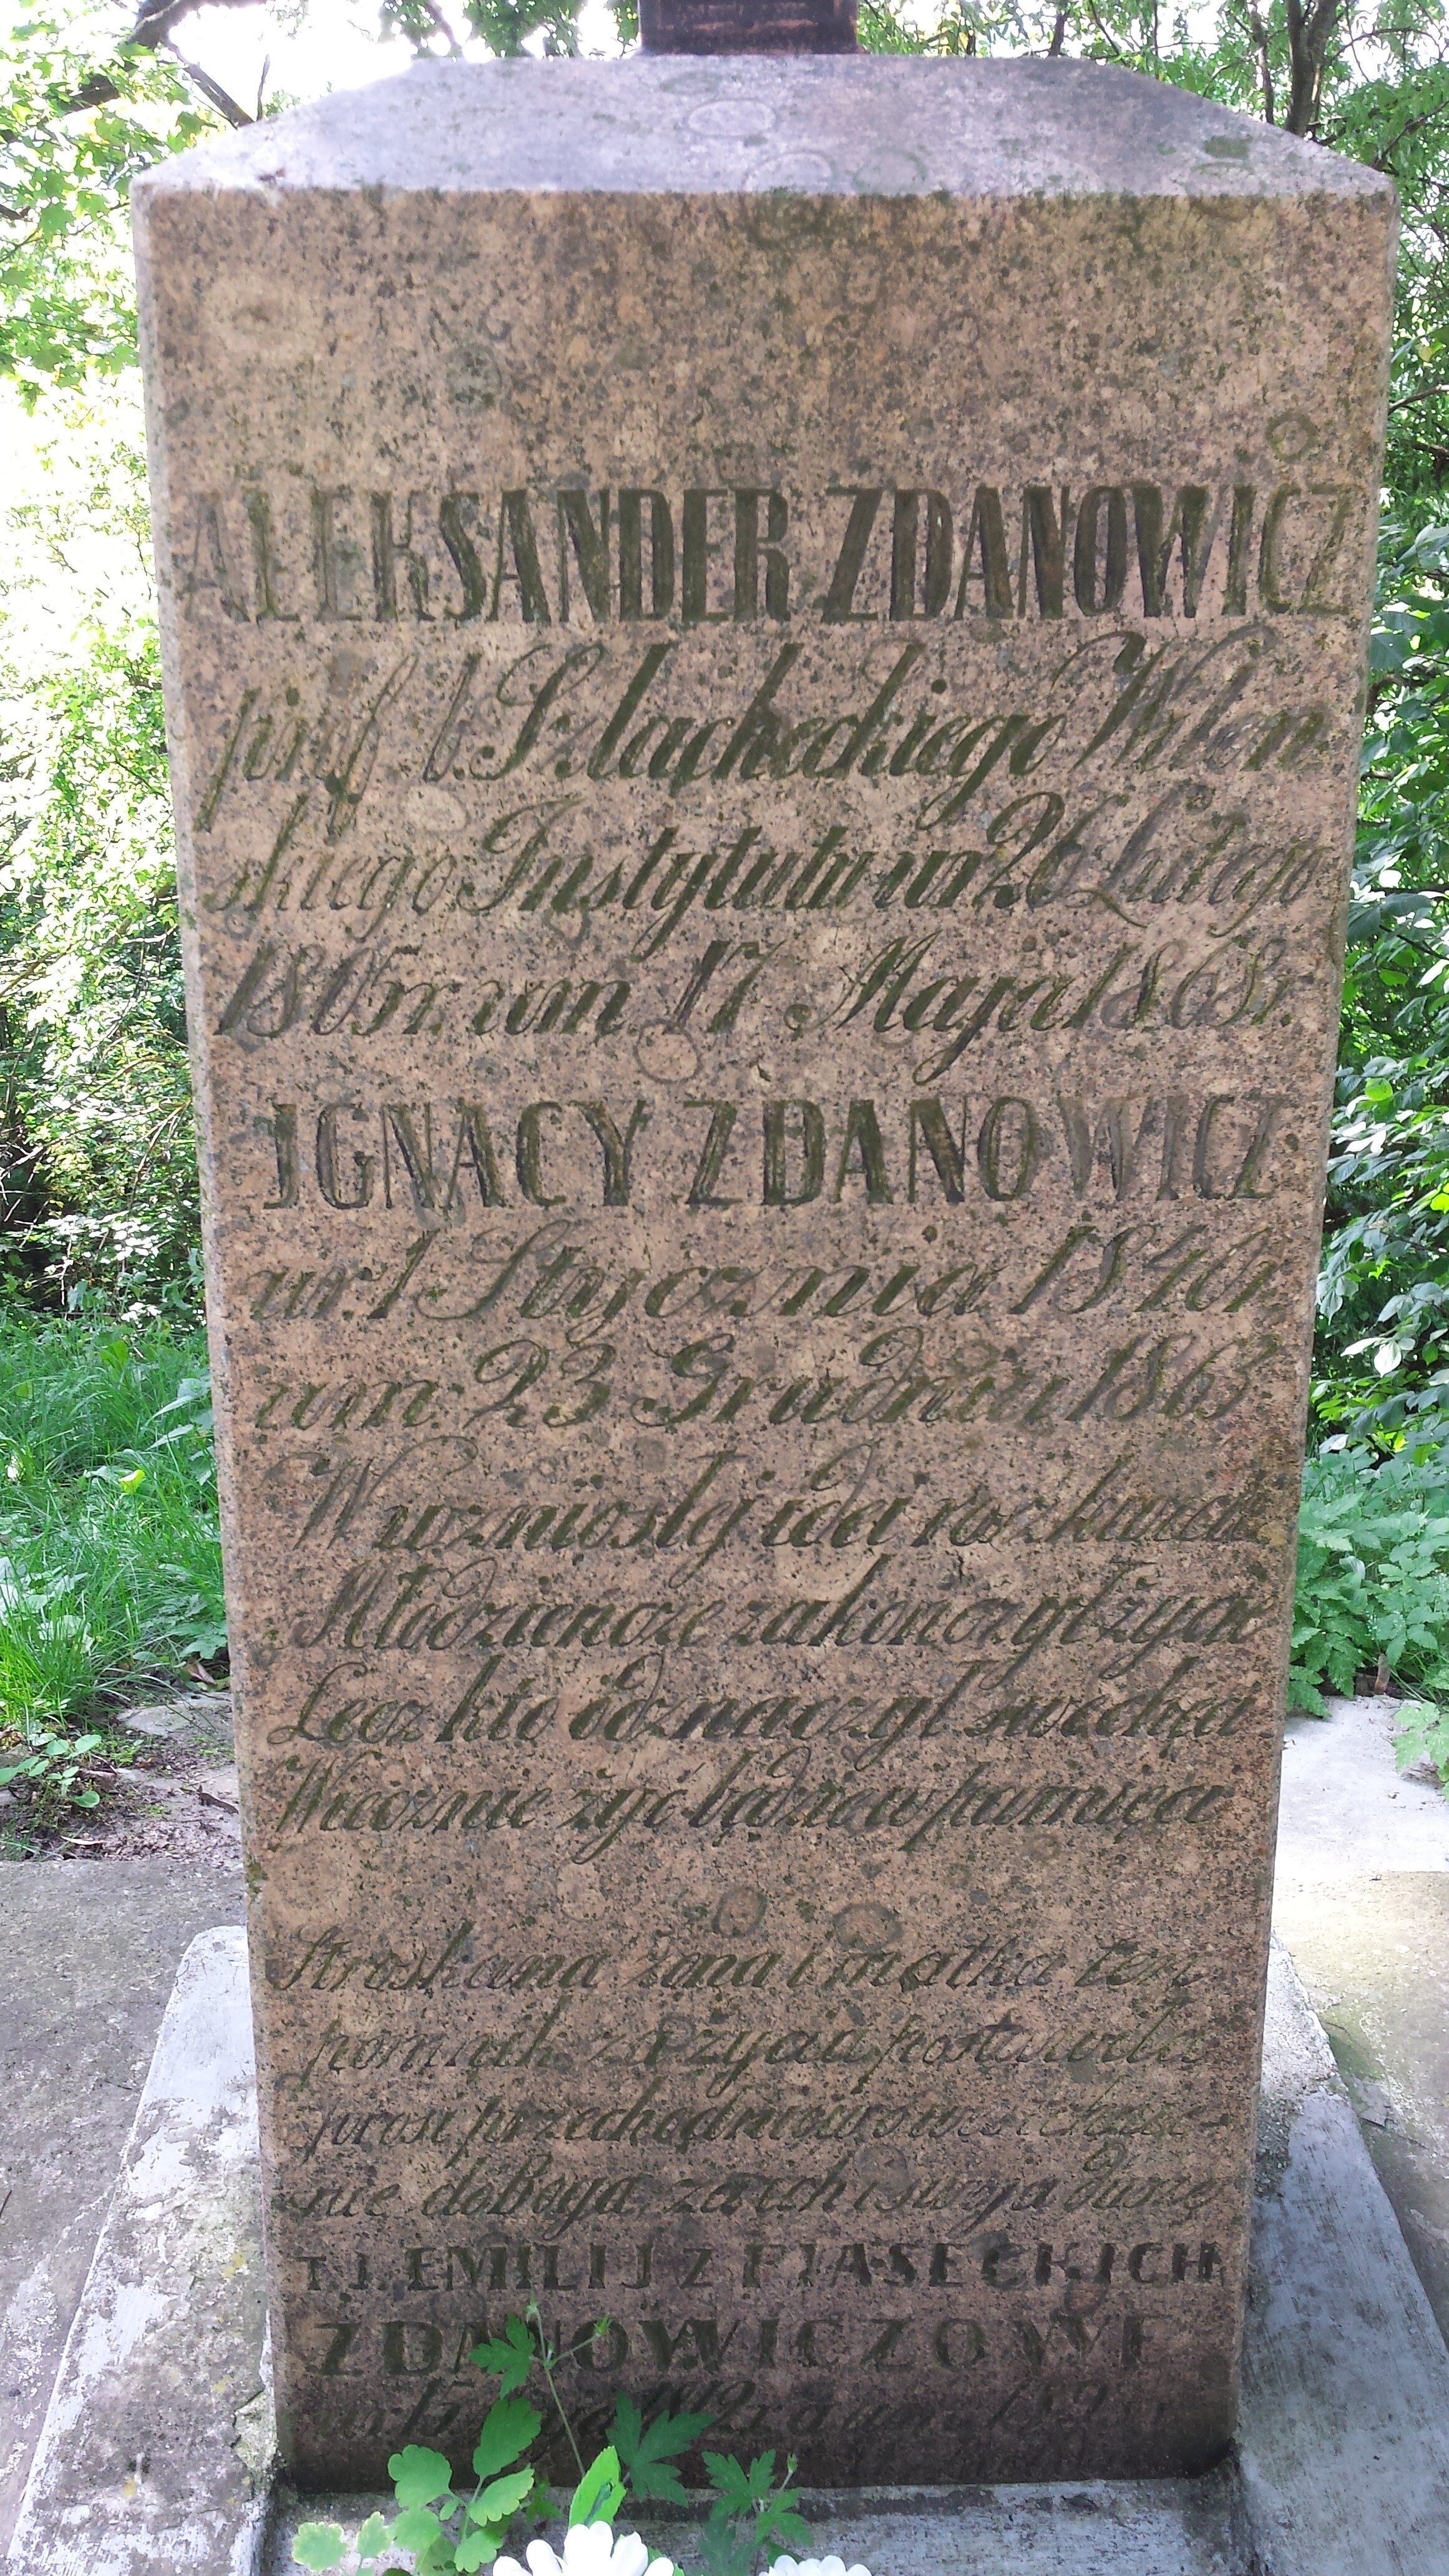 ALEKSANDER ZDANOWICZ
prof. b. Szlacheckiego Wilen
skiego Instytutu ur. 26 Lutego
1805 r. um. 17 Maja 1868 r.
IGNACY ZDANOWICZ
ur. 1 Stycznia 184
um. 23 Grudnia 1863
W wzniosłej idei
Młodzieńcze zakończył życie
Lecz kto odznaczył swe chęci
Wiecznie żyć będzie w pamięci
Stroskana żona i matka ten
pomnik za życia postawiła
prosi przechodniów o
nie do Boga za ich i swoją duszę
T. J. EMILIJ Z PIASECKICH
ZDANOWICZOWE
15